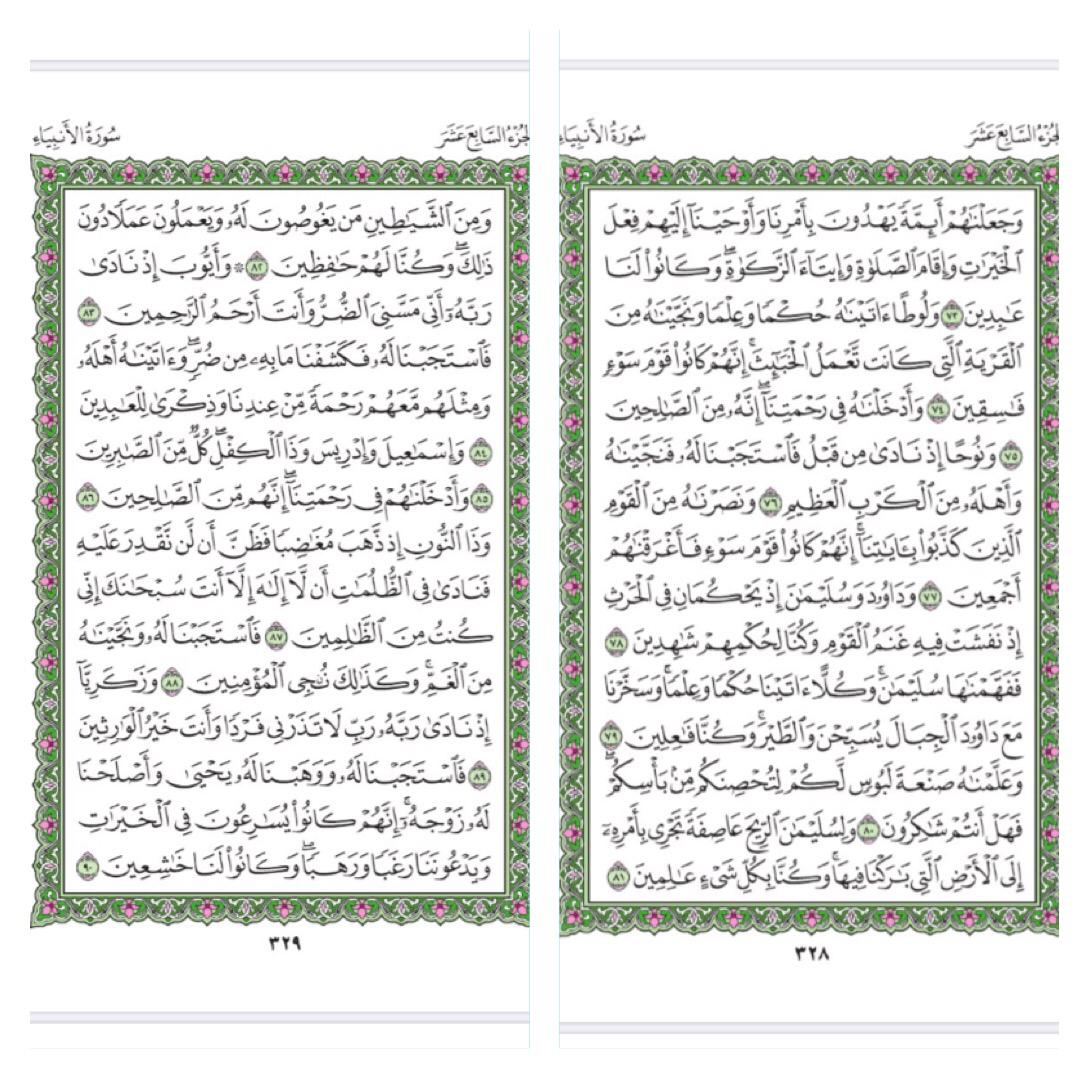 الجزء السابع عشر
سورة الأنبياء
وَجَعَلْنَٰهُمْ أَئِمَّةً يَهْدُونَ بِأَمْرِنَا وَأَوْحَيْنَآ إِلَيْهِمْ فِعْلَ
ٱلْخَيْرَٰتِ وَإِقَامَ ٱلصَّلَوٰةِ وَإِيتَآءَ ٱلزَّكَوٰةِ ۖ وَكَانُوا۟ لَنَا
عَٰبِدِينَ ٧٣ وَلُوطًا ءَاتَيْنَٰهُ حُكْمًا وَعِلْمًا وَنَجَّيْنَٰهُ مِنَ
ٱلْقَرْيَةِ ٱلَّتِى كَانَت تَّعْمَلُ ٱلْخَبَٰٓئِثَ ۗ إِنَّهُمْ كَانُوا۟ قَوْمَ سَوْءٍ
فَٰسِقِينَ ٧٤ وَأَدْخَلْنَٰهُ فِى رَحْمَتِنَآ ۖ إِنَّهُۥ مِنَ ٱلصَّٰلِحِينَ
٧٥ وَنُوحًا إِذْ نَادَىٰ مِن قَبْلُ فَٱسْتَجَبْنَا لَهُۥ فَنَجَّيْنَٰهُ
وَأَهْلَهُۥ مِنَ ٱلْكَرْبِ ٱلْعَظِيمِ ٧٦ وَنَصَرْنَٰهُ مِنَ ٱلْقَوْمِ
ٱلَّذِينَ كَذَّبُوا۟ بِـَٔايَٰتِنَآ ۚ إِنَّهُمْ كَانُوا۟ قَوْمَ سَوْءٍ فَأَغْرَقْنَٰهُمْ
أَجْمَعِينَ ٧٧ وَدَاوُۥدَ وَسُلَيْمَٰنَ إِذْ يَحْكُمَانِ فِى ٱلْحَرْثِ
إِذْ نَفَشَتْ فِيهِ غَنَمُ ٱلْقَوْمِ وَكُنَّا لِحُكْمِهِمْ شَٰهِدِينَ ٧٨
فَفَهَّمْنَٰهَا سُلَيْمَٰنَ ۚ وَكُلًّا ءَاتَيْنَا حُكْمًا وَعِلْمًا ۚ وَسَخَّرْنَا
مَعَ دَاوُۥدَ ٱلْجِبَالَ يُسَبِّحْنَ وَٱلطَّيْرَ ۚ وَكُنَّا فَٰعِلِينَ ٧٩
وَعَلَّمْنَٰهُ صَنْعَةَ لَبُوسٍ لَّكُمْ لِتُحْصِنَكُم مِّنۢ بَأْسِكُمْ ۖ
فَهَلْ أَنتُمْ شَٰكِرُونَ ٨٠ وَلِسُلَيْمَٰنَ ٱلرِّيحَ عَاصِفَةً تَجْرِى بِأَمْرِهِۦٓ
إِلَى ٱلْأَرْضِ ٱلَّتِى بَٰرَكْنَا فِيهَا ۚ وَكُنَّا بِكُلِّ شَىْءٍ عَٰلِمِينَ ٨١
٣٢٨
الجزء السابع عشر
سورة الأنبياء
وَمِنَ ٱلشَّيَٰطِينِ مَن يَغُوصُونَ لَهُۥ وَيَعْمَلُونَ عَمَلًا دُونَ
ذَٰلِكَ ۖ وَكُنَّا لَهُمْ حَٰفِظِينَ ٨٢ ۞ وَأَيُّوبَ إِذْ نَادَىٰ
رَبَّهُۥٓ أَنِّى مَسَّنِىَ ٱلضُّرُّ وَأَنتَ أَرْحَمُ ٱلرَّٰحِمِينَ ٨٣
فَٱسْتَجَبْنَا لَهُۥ فَكَشَفْنَا مَا بِهِۦ مِن ضُرٍّ ۖ وَءَاتَيْنَٰهُ أَهْلَهُۥ
وَمِثْلَهُم مَّعَهُمْ رَحْمَةً مِّنْ عِندِنَا وَذِكْرَىٰ لِلْعَٰبِدِينَ
٨٤ وَإِسْمَٰعِيلَ وَإِدْرِيسَ وَذَا ٱلْكِفْلِ ۖ كُلٌّ مِّنَ ٱلصَّٰبِرِينَ
٨٥ وَأَدْخَلْنَٰهُمْ فِى رَحْمَتِنَآ ۖ إِنَّهُم مِّنَ ٱلصَّٰلِحِينَ ٨٦
وَذَا ٱلنُّونِ إِذ ذَّهَبَ مُغَٰضِبًا فَظَنَّ أَن لَّن نَّقْدِرَ عَلَيْهِ
فَنَادَىٰ فِى ٱلظُّلُمَٰتِ أَن لَّآ إِلَٰهَ إِلَّآ أَنتَ سُبْحَٰنَكَ إِنِّى
كُنتُ مِنَ ٱلظَّٰلِمِينَ ٨٧ فَٱسْتَجَبْنَا لَهُۥ وَنَجَّيْنَٰهُ
مِنَ ٱلْغَمِّ ۚ وَكَذَٰلِكَ نُـۨجِى ٱلْمُؤْمِنِينَ ٨٨ وَزَكَرِيَّآ
إِذْ نَادَىٰ رَبَّهُۥ رَبِّ لَا تَذَرْنِى فَرْدًا وَأَنتَ خَيْرُ ٱلْوَٰرِثِينَ
٨٩ فَٱسْتَجَبْنَا لَهُۥ وَوَهَبْنَا لَهُۥ يَحْيَىٰ وَأَصْلَحْنَا
لَهُۥ زَوْجَهُۥٓ ۚ إِنَّهُمْ كَانُوا۟ يُسَٰرِعُونَ فِى ٱلْخَيْرَٰتِ
وَيَدْعُونَنَا رَغَبًا وَرَهَبًا ۖ وَكَانُوا۟ لَنَا خَٰشِعِينَ ٩٠
٣٢٩